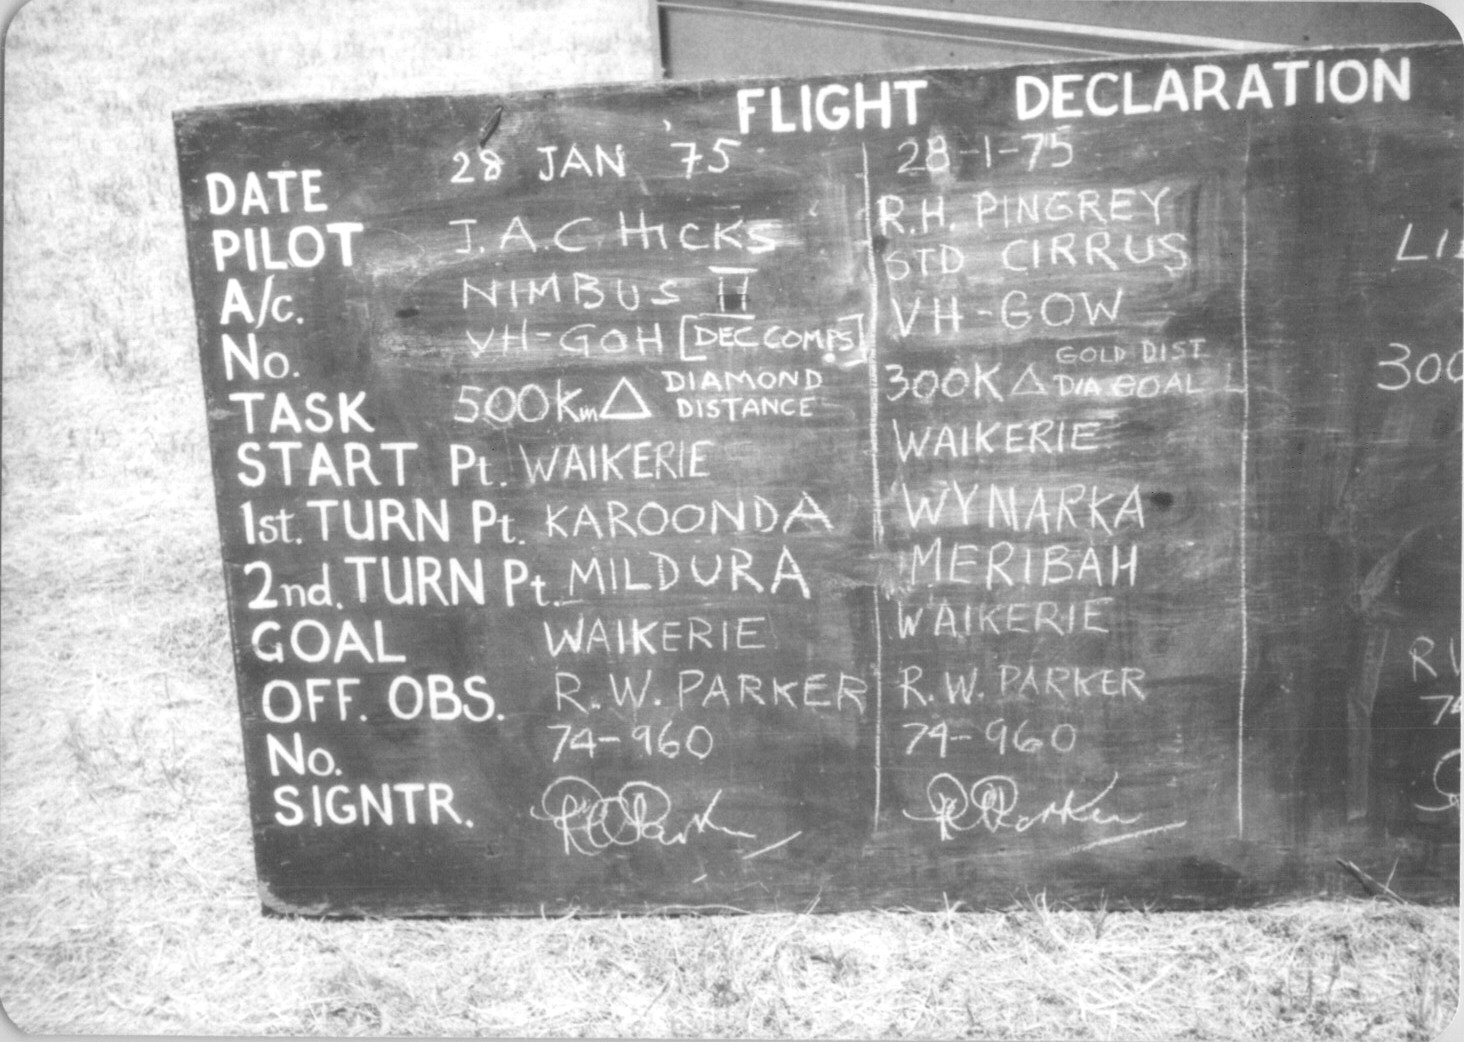 FLIGHT DECLARATION
DATE 28 JAN 75 28-1-75
PILOT J.A.C HICKS R.H. PINGREY
A/c. NIMBUS II STD CIRRUS
No. VH-GOH [DEC COMPS] VH-GOW
TASK 500Km △ DIAMOND DISTANCE 300K △ GOLD DIST DIA GOAL 300
START Pt. WAIKERIE WAIKERIE
1st. TURN Pt. KAROONDA WYNARKA
2nd. TURN Pt. MILDURA MERIBAH
GOAL WAIKERIE WAIKERIE
OFF. OBS. R.W. PARKER R.W. PARKER
No. 74-960 74-960
SIGNTR. RWParker RWParker